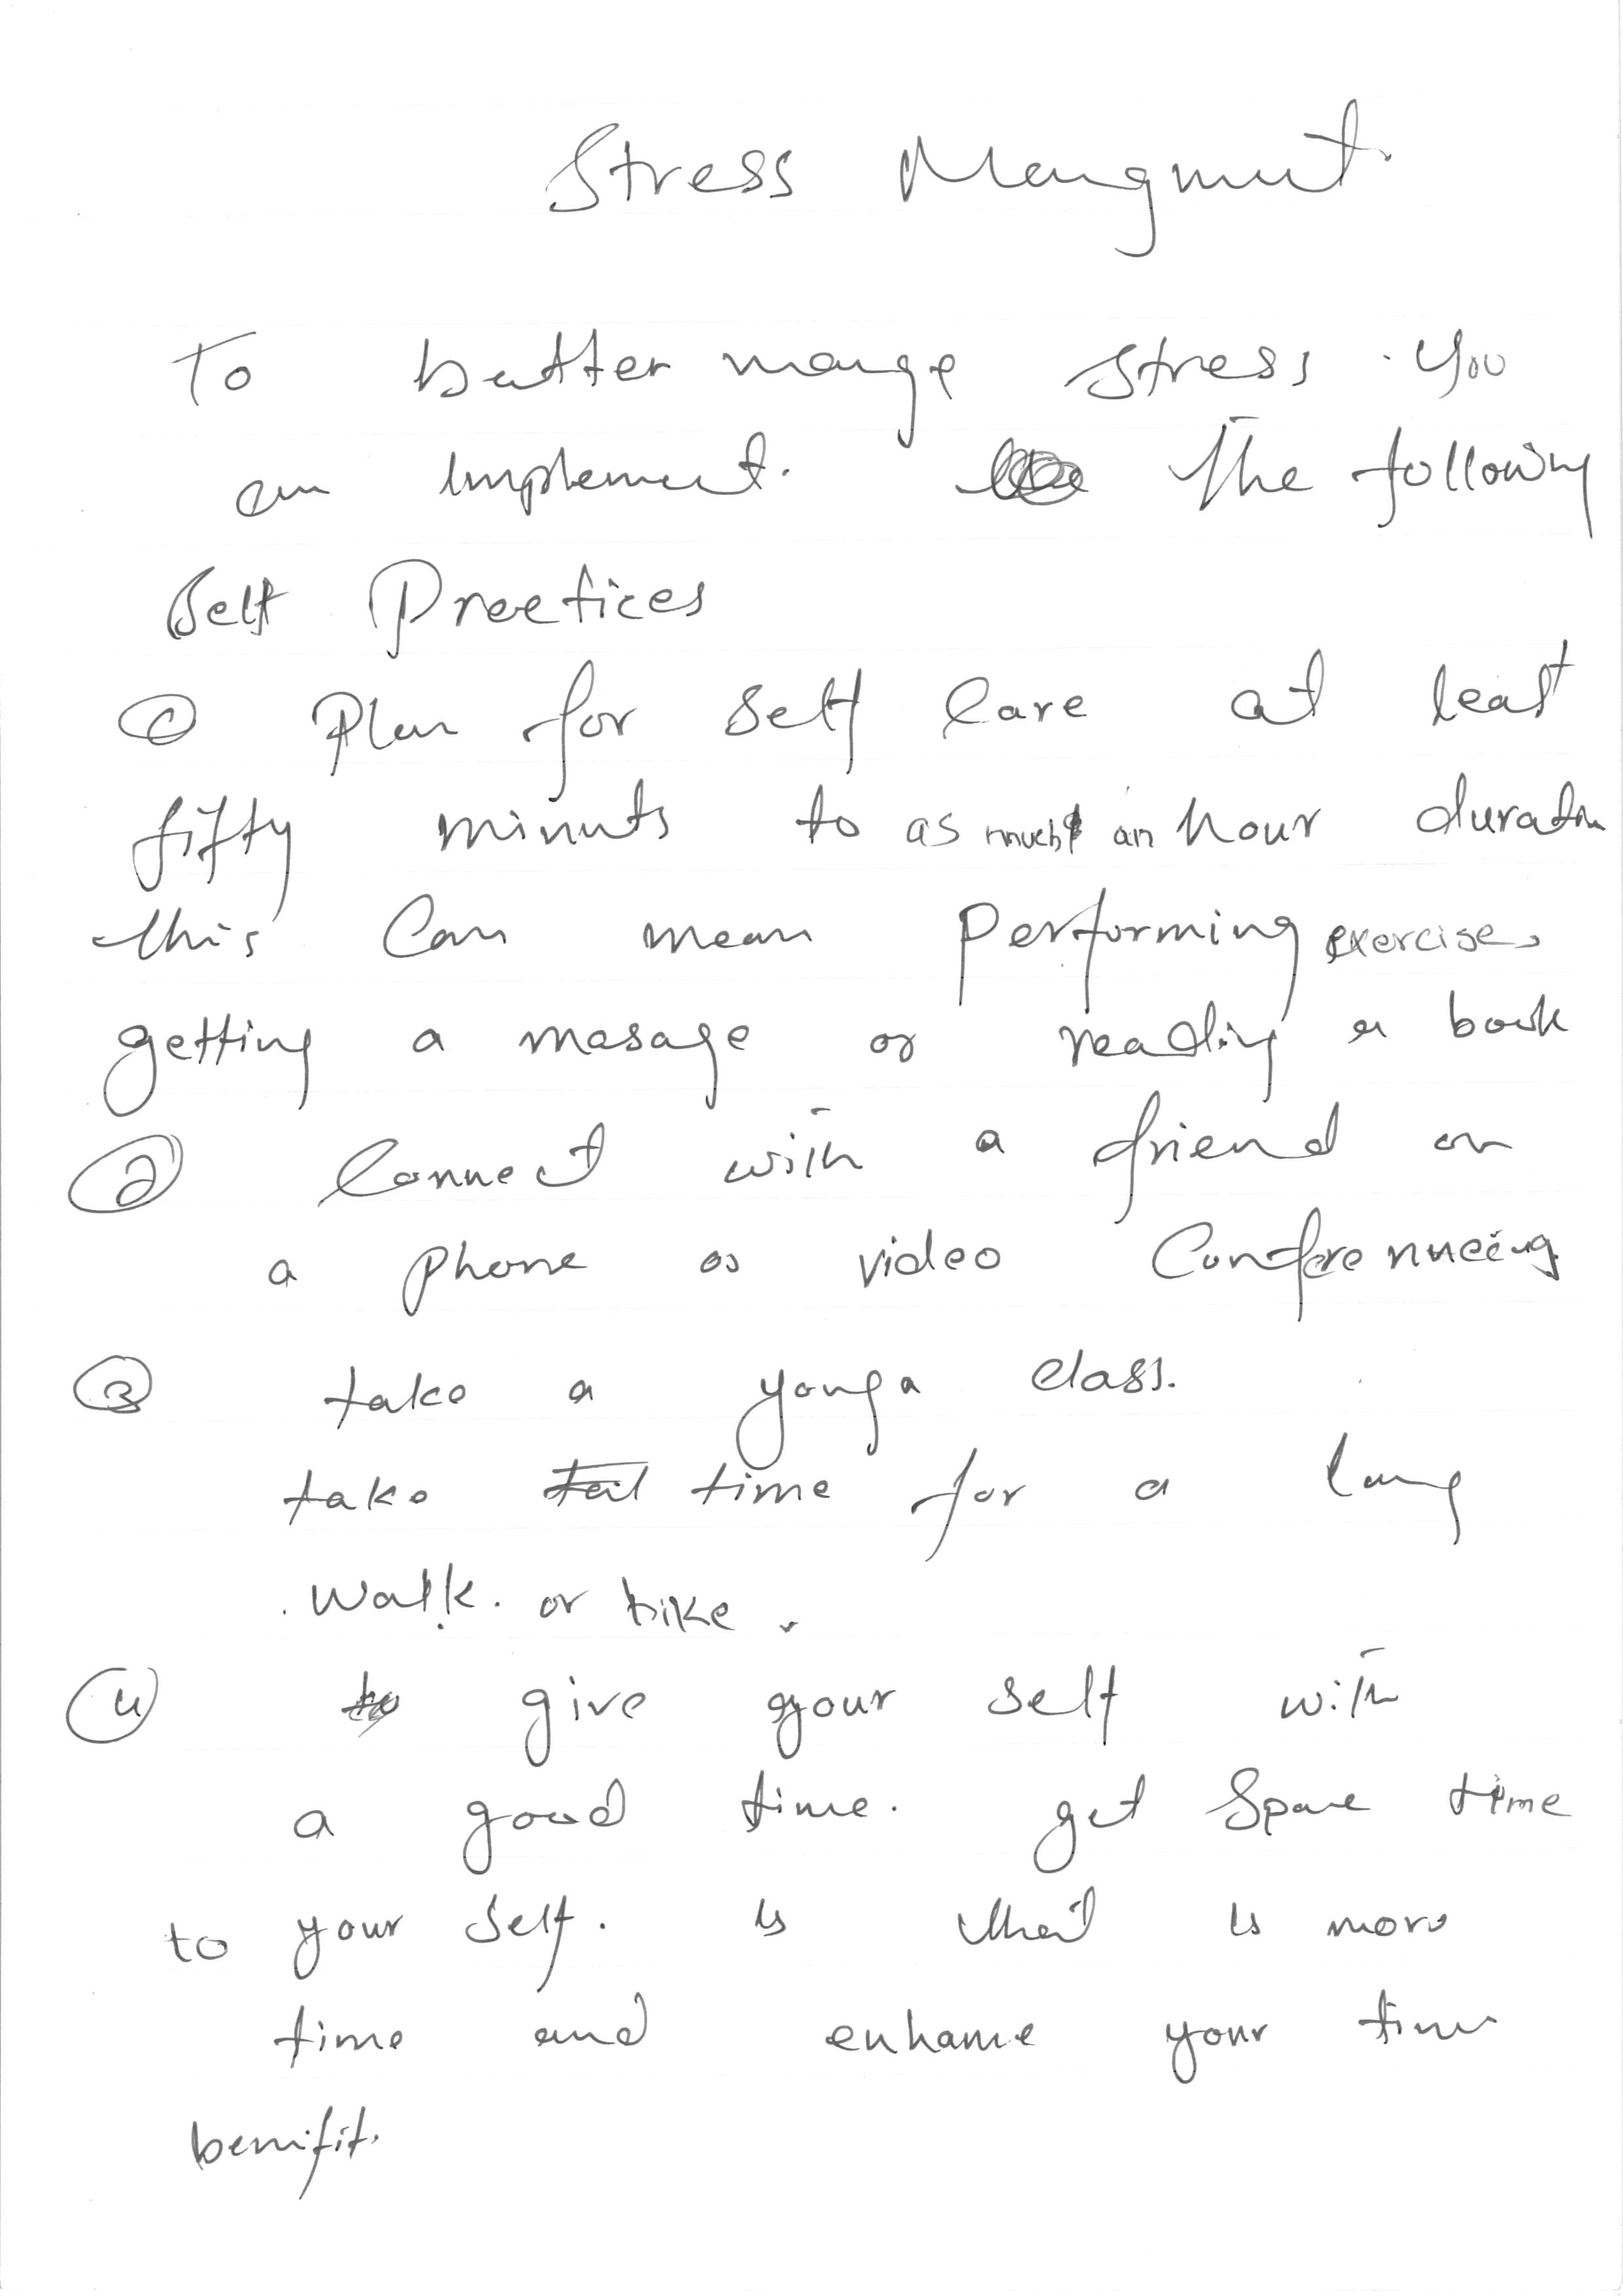 Stress Mangment.
To better mange stress. You
can implement. the following
Self Practices
① Plan for self Care at least
fifty minuts to as much an hour duratn
this Can mean Performing exercise,
getting a masage or reading a book
② Connect with a friend on
a phone or video Conferenceing
③ take a youga class.
take time for a long
walk. or bike.
④ give your self with
a good time. get Spare time
to your self. is that is more
time and enhance your time
benifit.